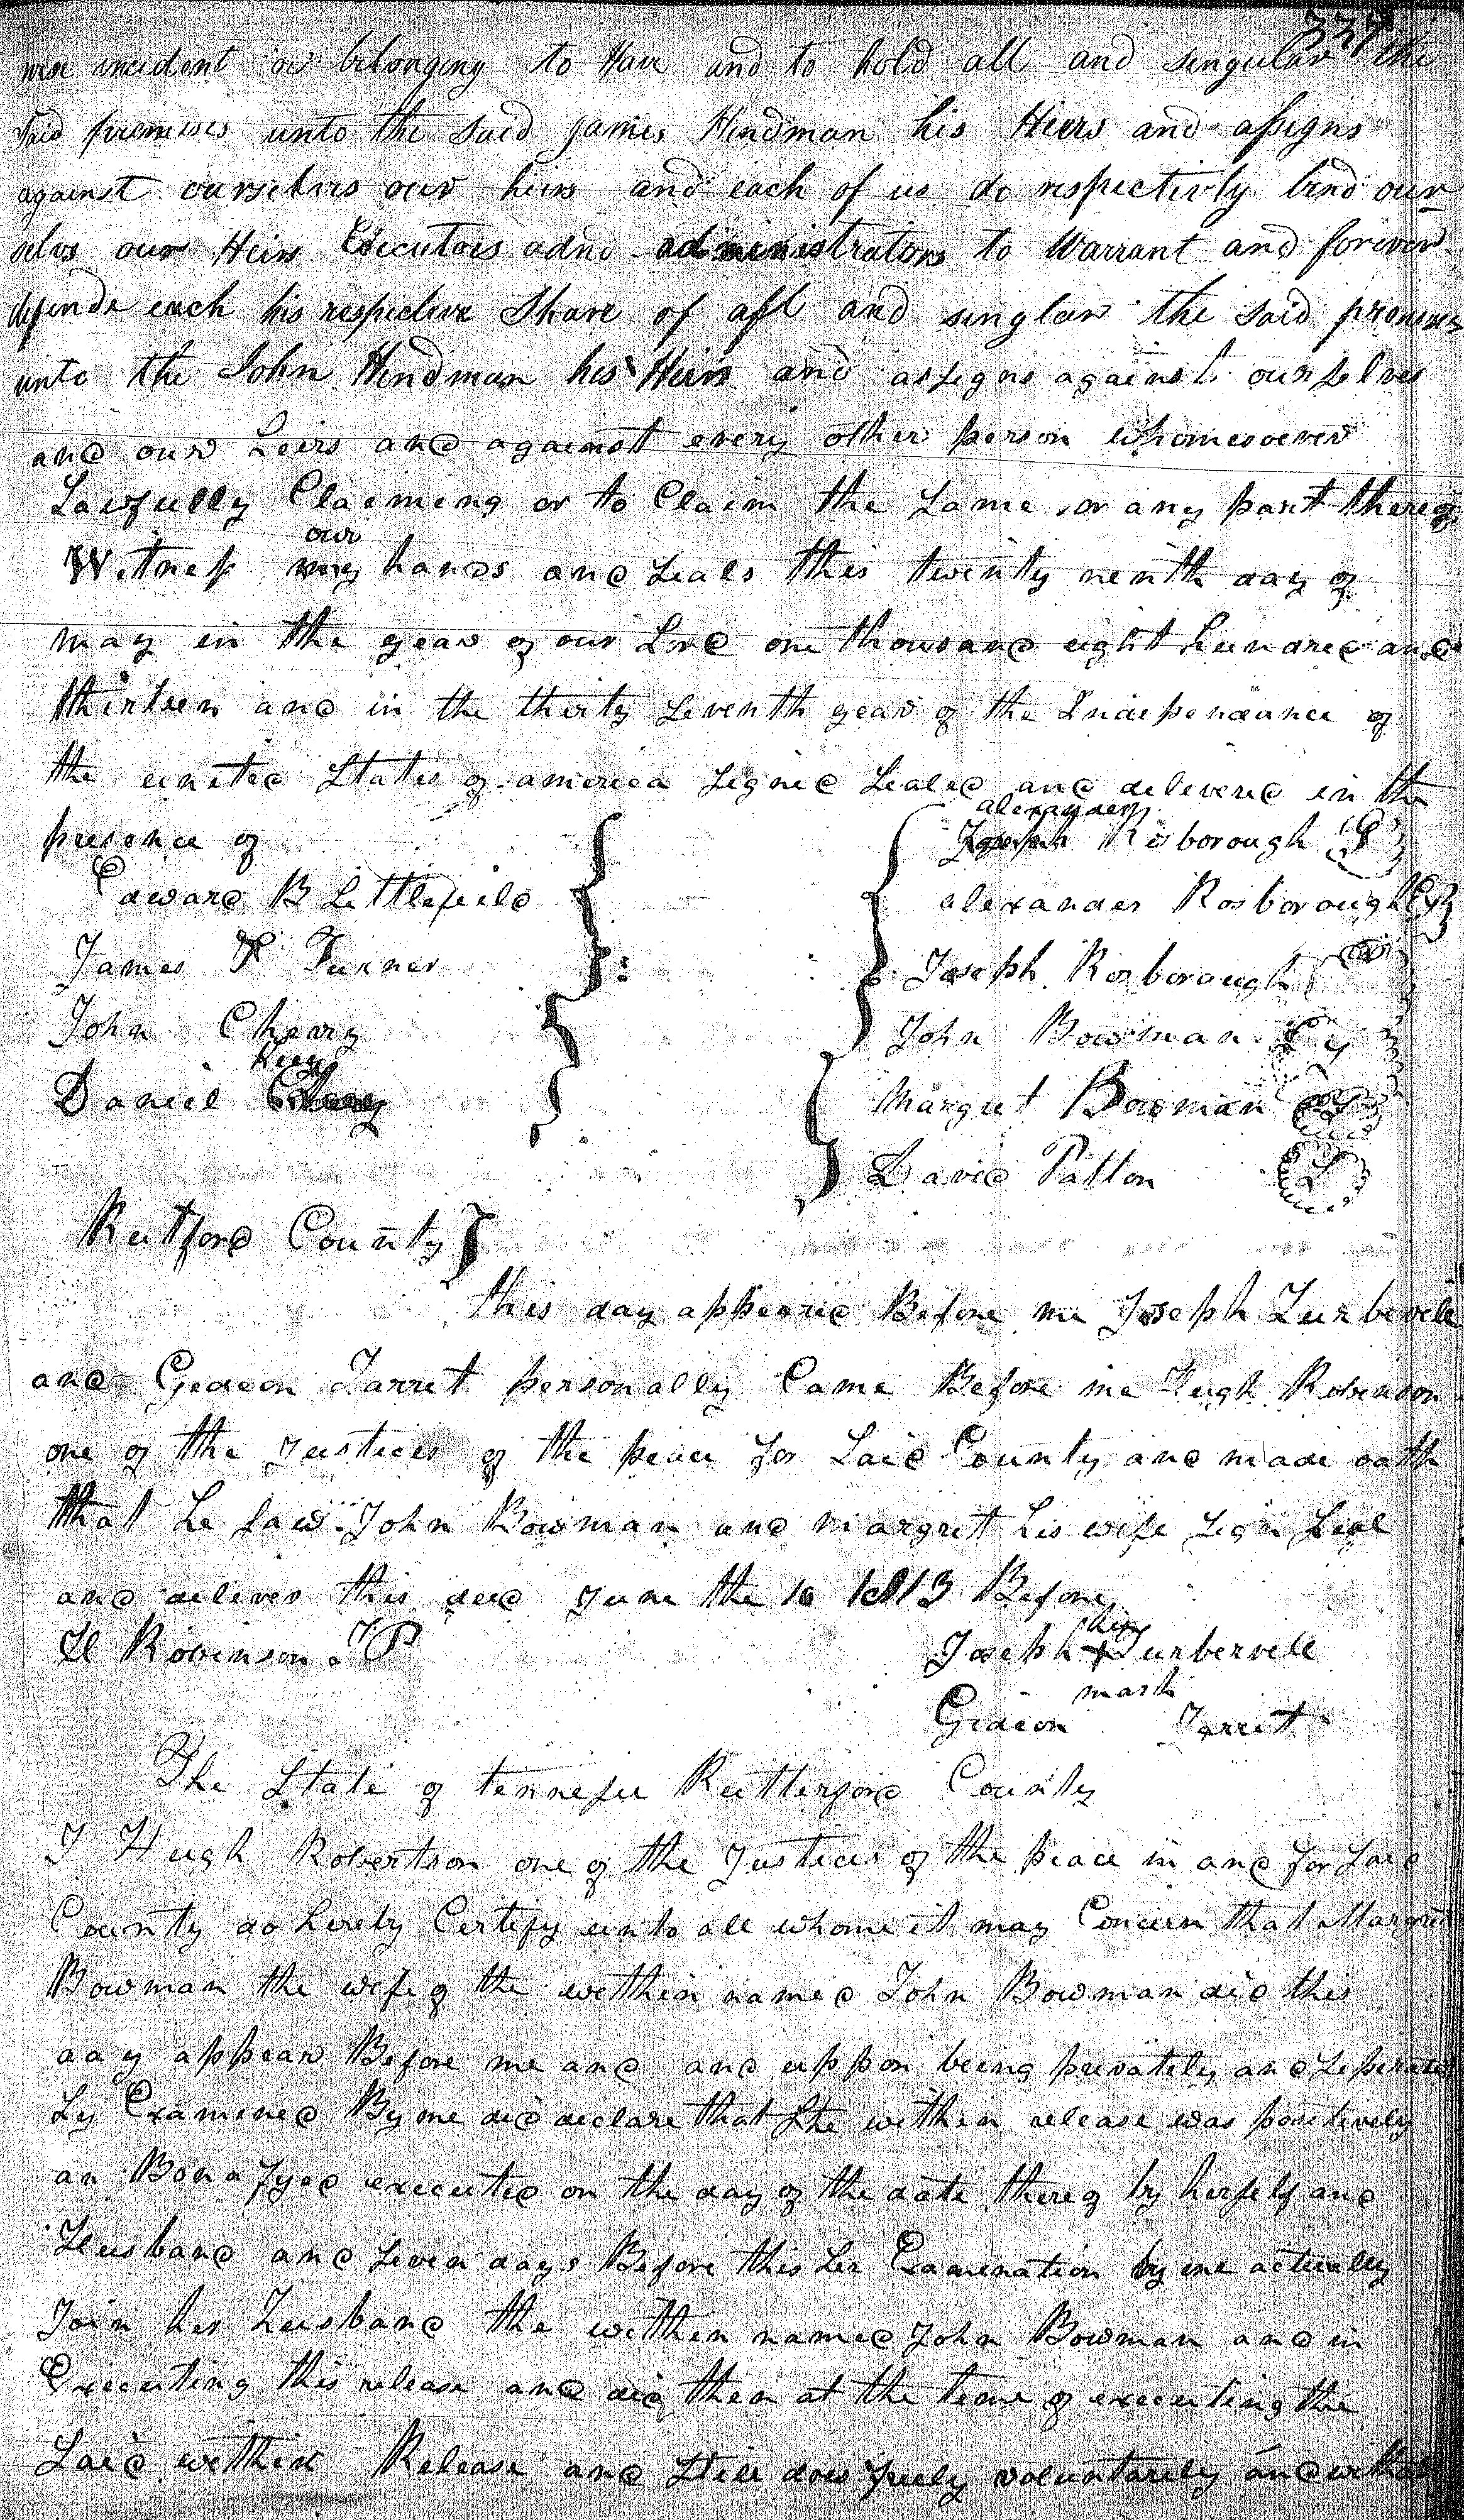 337
wise incident or belonging to Have and to hold all and singular the
said premises unto the said James Hindman his Heirs and assigns
against ourselvis our heirs and each of us do respectivly bind our-
selvs our Heirs Executors adnd administrators to Warrant and forever
defende each his respective Share of all and singlar the said premises
unto the John Hindman his Heirs and assigns against ourselves
and our heirs and against every other person whomesoever
Lawfully Claiming or to Claim the same or any part thereof
our
Witness my hands and seals this twenty ninth day of
may in the year of our Lord one thousand eight hundred and
thirteen and in the thirty seventh year of the Independance of
the united States of america signed sealed and delivered in the
presence of
alexander
Joseph Rosborough
Edward B Littlefield
alexander Rosborough
James Turner
Joseph Rosborough
John Cherry
John Bowman
Daniel
Margret Bowman
David Patton
Rutford County
this day appeared Before me Joseph Turbevill
and Gedeon Jarret personally Came Before me Hugh Robenson
one of the Justices of the peace for said County and made oath
that he saw John Bowman and margret his wife sign seal
and deliver this deed June the 10 1813 Before
H Robinson JP
his
Joseph + Turbervell
mark
Gideon Jarret
The State of tennessee Rutterford County
I Hugh Robertson one of the Justices of the peace in and for said
County do hereby Certify unto all whome it may Concern that Margret
Bowman the wife of the within named John Bowman did this
day appear Before me and and uppon being privately and seperate
ly Examined By me did declare that she within release was positively
an Bona fyed executed on the day of the date thereof by herself and
Husband and seven days Before this her Examination by me actually
Join her husband the within named John Bowman and in
Executing this release and did then at the time of executing the
said within Release and still does freely voluntarily and without